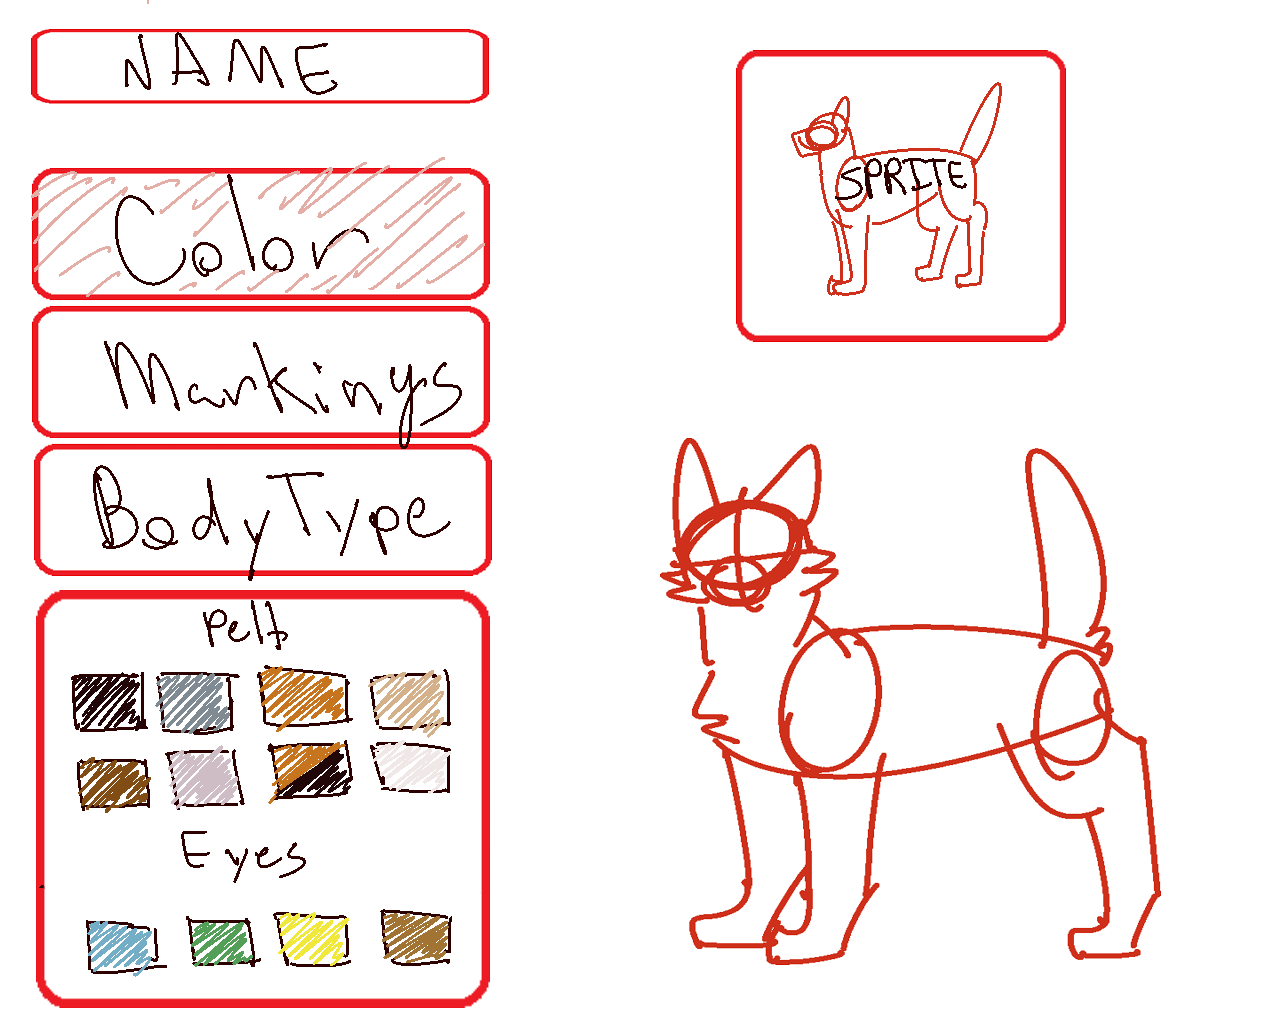 NAME
Color
Markings
BodyType
Pelt
Eyes
SPRITE